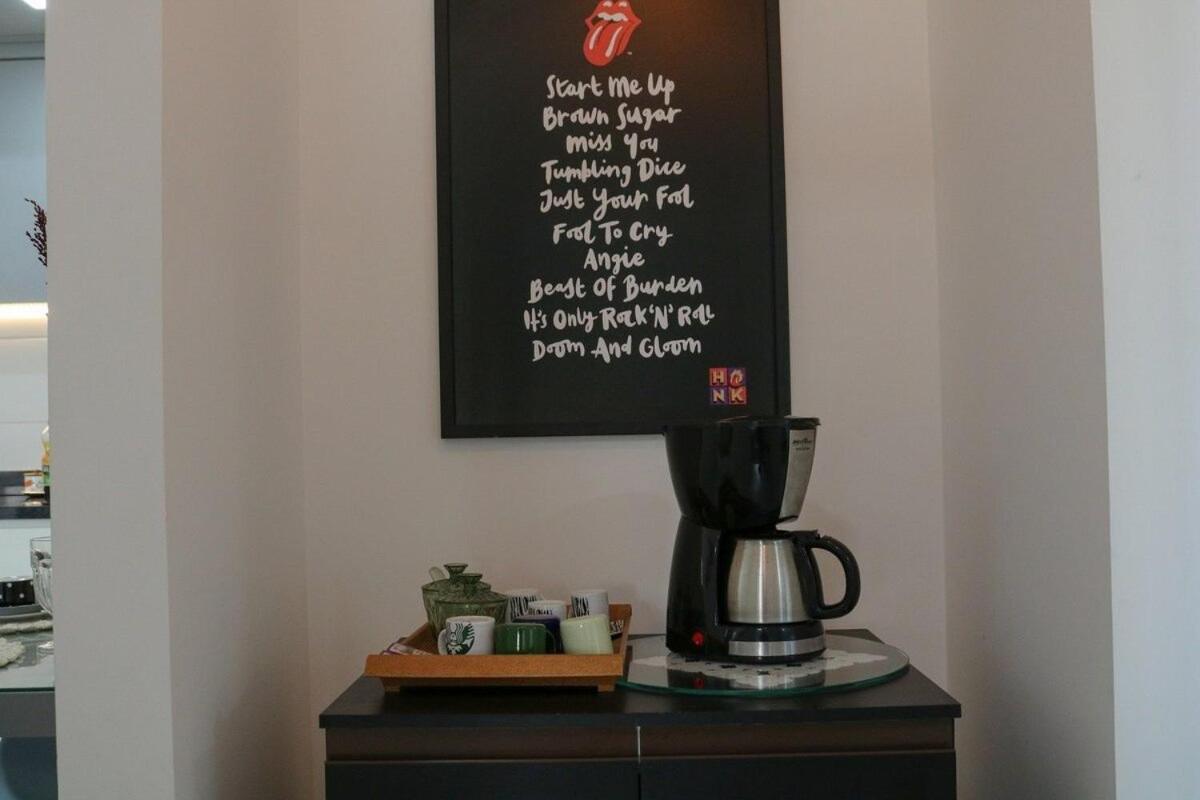 Start Me Up
Brown Sugar
Miss You
Tumbling Dice
Just Your Fool
Fool To Cry
Angie
Beast Of Burden
It's Only Rock 'N' Roll
Doom And Gloom
HO
NK